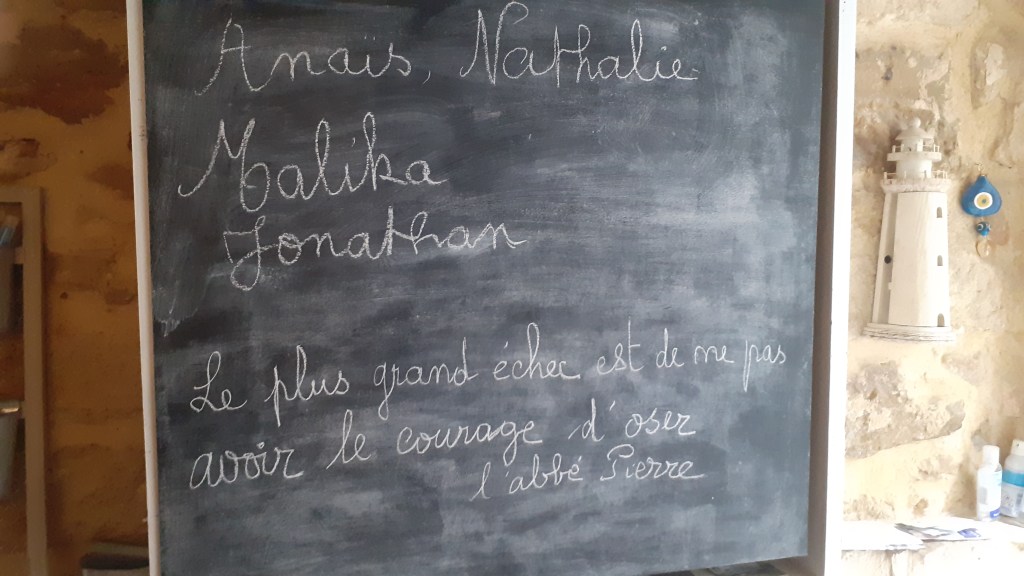 Anaïs, Nathalie
Malika
Jonathan
Le plus grand échec est de ne pas
avoir le courage d'oser
l'abbé Pierre